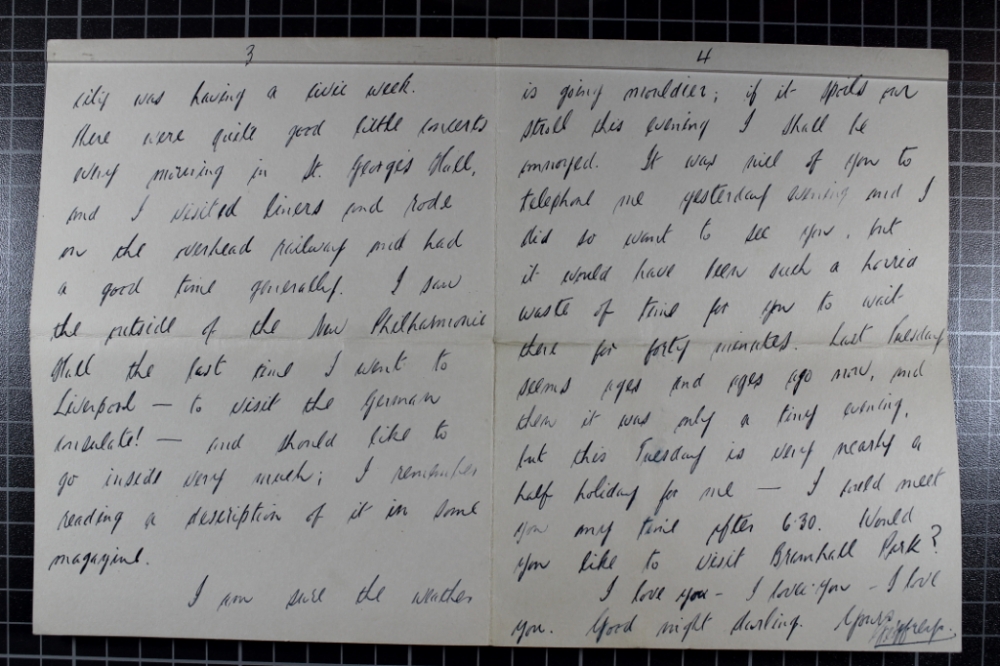 3
city was having a civic week.
There were quite good little concerts
every morning in St. George's Hall,
and I visited liners and rode
on the overhead railway and had
a good time generally. I saw
the outside of the New Philharmonic
Hall the last time I went to
Liverpool — to visit the German
consulate! — and should like to
go inside very much; I remember
reading a description of it in some
magazine.
I am sure the weather
4
is going mouldier; if it spoils our
stroll this evening I shall be
annoyed. It was nice of you to
telephone me yesterday evening and I
did so want to see you, but
it would have been such a horrid
waste of time for you to wait
there for forty minutes. Last Tuesday
seems ages and ages ago now, and
then it was only a tiny evening,
but this Tuesday is very nearly a
half holiday for me — I could meet
you any time after 6.30. Would
you like to visit Bramhall Park?
I love you - I love you - I love
you. Good night darling. Yours
Geoffrey.